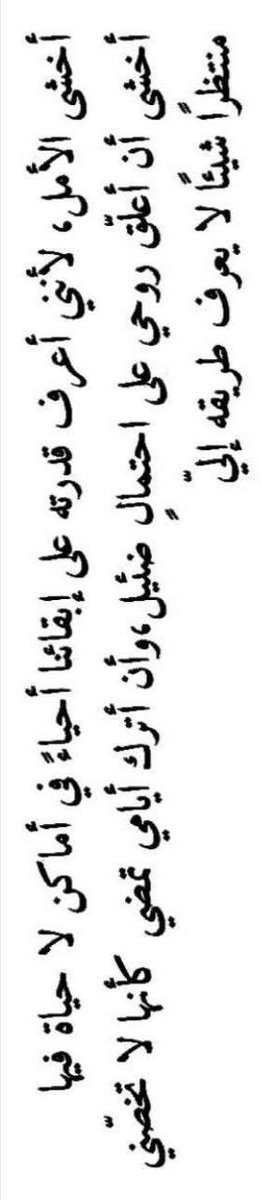 أخشى الأمل، لأنني أعرف قدرته على إبقائنا أحياءً في أماكن لا حياة فيها
أخشى أن أعلّق روحي على احتمالٍ ضئيل، وأن أترك أيامي تمضي كأنها لا تخصّني
منتظرًا شيئًا لا يعرف طريقه إليّ